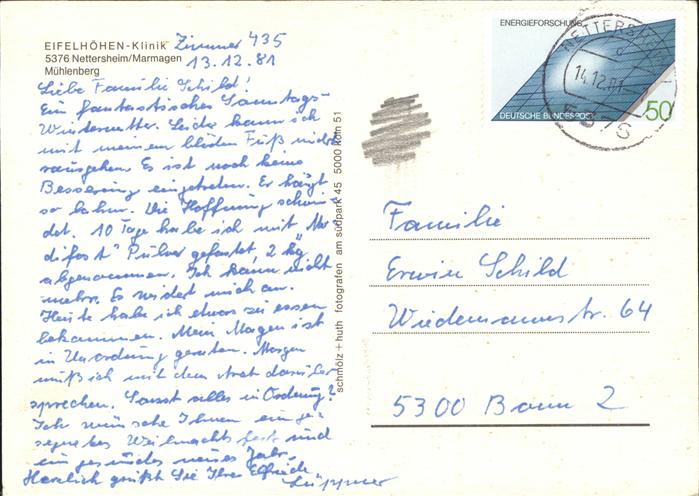 EIFELHÖHEN-Klinik Zimmer 435
5376 Nettersheim/Marmagen 13.12.81
Mühlenberg
Liebe Familie Schild!
Ein fantastisches Samstags-
Winterwetter. Leider kann ich
mit meinem blöden Fuß nicht
rausgehen. Es ist noch keine
Besserung eingetreten. Er hängt
so lahm. Die Hoffnung schwin-
det. 10 Tage habe ich mit "Mo
difast" Pulver gefastet, 2 kg
abgenommen. Ich kann nicht
mehr. Es widert mich an.
Heute habe ich etwas zu essen
bekommen. Mein Magen ist
in Unordnung geraten. Morgen
muß ich mit dem Arzt darüber
sprechen. Sonst alles in Ordnung?
Ich wünsche Ihnen ein ge-
segnetes Weihnachtsfest und
ein gesundes neues Jahr.
Herzlich grüßt Sie Ihre Elfriede
Lüppner
schmölz + huth fotografen am südpark 45 5000 köln 51
ENERGIEFORSCHUNG
DEUTSCHE BUNDESPOST
50
NETTERSHEIM
14.12.81
5376
Familie
Erwin Schild
Wiedemannstr. 64
5300 Bonn 2